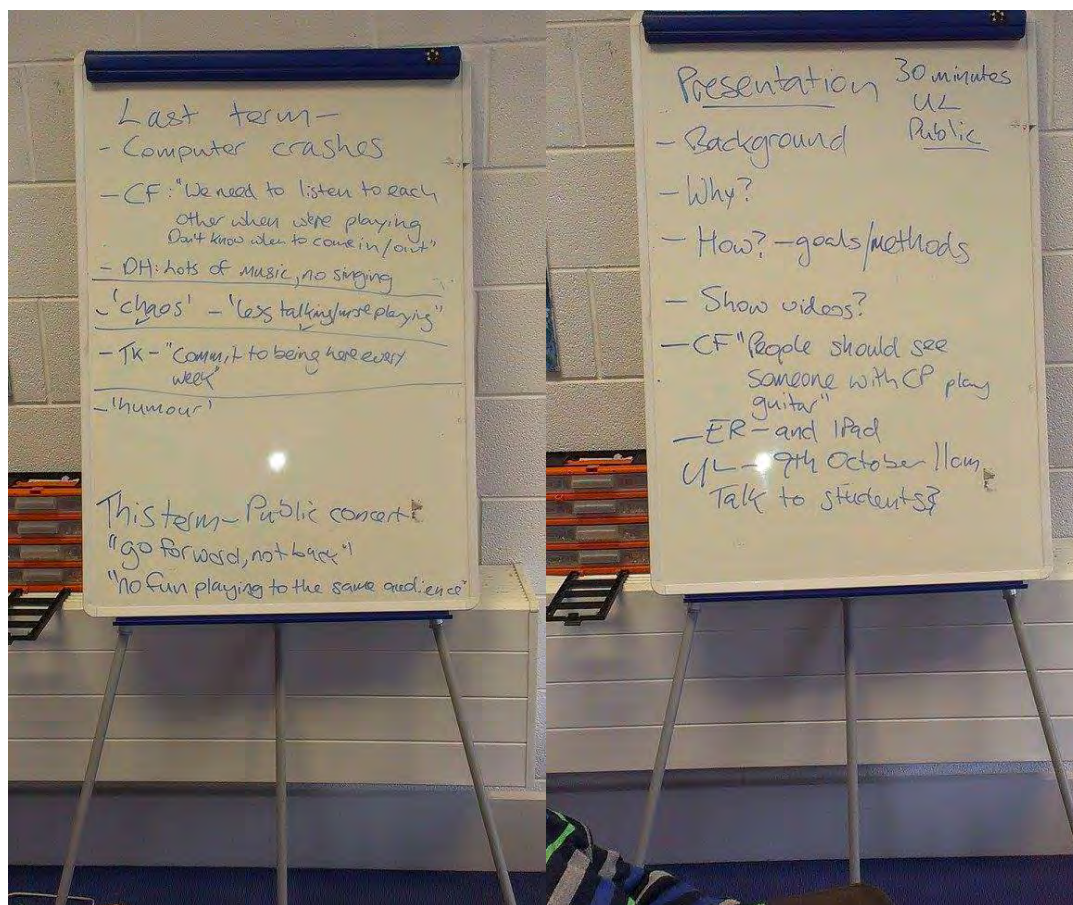 Last term -
- Computer crashes
- CF: "We need to listen to each
other when we're playing
Don't know when to come in/out"
- DH: Lots of music, no singing
- 'chaos' - 'less talking/more playing"
- TK - "Commit to being here every
week"
- 'humour'
This term - Public concert
"go forward, not back"!
"no fun playing to the same audience"
Presentation
30 minutes
UL
Public
- Background
- Why?
- How? - goals/methods
- Show videos?
- CF "People should see
someone with CP play
guitar"
- ER - and iPad
UL - 9th October 11am
Talk to students?